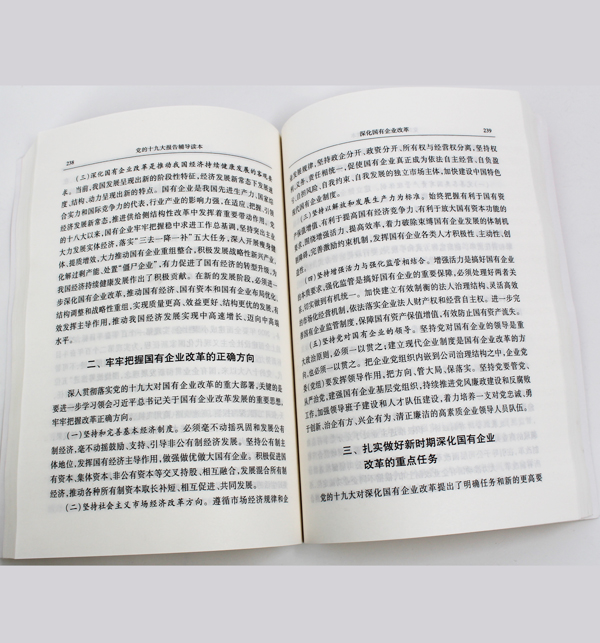 238
党的十九大报告辅导读本
（三）深化国有企业改革是推动我国经济持续健康发展的客观要
求。当前，我国发展呈现出新的阶段性特征，经济发展新常态下发展速
度、结构、动力呈现出新的特点。国有企业是我国先进生产力、国家综
合实力和国际竞争力的代表，行业产业的影响力强，在适应、把握、引领
经济发展新常态、推进供给侧结构性改革中发挥着重要带动作用。党
的十八大以来，国有企业牢牢把握稳中求进工作总基调，坚持突出主业、
大力发展实体经济，落实“三去一降一补”五大任务，深入开展瘦身健
体、提质增效，大力推动国有企业重组整合，积极发展战略性新兴产业，
化解过剩产能、处置“僵尸企业”，有力促进了国有经济的转型升级，为
我国经济持续健康发展作出了积极贡献。在新的发展阶段，必须进一
步深化国有企业改革，推动国有经济、国有资本和国有企业布局优化、
结构调整和战略性重组，实现质量更高、效益更好、结构更优的发展，有
效发挥主导作用，推动我国经济发展实现中高速增长、迈向中高端
水平。
二、牢牢把握国有企业改革的正确方向
深入贯彻落实党的十九大对国有企业改革的重大部署，关键的是
要进一步学习领会习近平总书记关于国有企业改革发展的重要思想，
牢牢把握改革正确方向。
（一）坚持和完善基本经济制度。必须毫不动摇巩固和发展公有
制经济，毫不动摇鼓励、支持、引导非公有制经济发展。坚持公有制主
体地位，发挥国有经济主导作用，做强做优做大国有企业。积极促进国
有资本、集体资本、非公有资本等交叉持股、相互融合，发展混合所有制
经济，推动各种所有制资本取长补短、相互促进、共同发展。
（二）坚持社会主义市场经济改革方向。遵循市场经济规律和企
深化国有企业改革
239
业发展规律，坚持政企分开、政资分开、所有权与经营权分离，坚持权
利、义务、责任相统一，促使国有企业真正成为依法自主经营、自负盈
亏、自担风险、自我约束、自我发展的独立市场主体，加快建设中国特色
现代国有企业制度。
（三）坚持以解放和发展生产力为标准。始终把握有利于国有资
产保值增值、有利于提高国有经济竞争力、有利于放大国有资本功能的
要求，围绕增强活力、提高效率，着力破除束缚国有企业发展的体制机
制，完善激励约束机制，发挥国有企业各类人才积极性、主动性、创
造性。
（四）坚持增强活力与强化监管相结合。增强活力是搞好国有企业
的本质要求，强化监管是搞好国有企业的重要保障，必须处理好两者关
系，切实做到有机统一。加快建立有效制衡的法人治理结构、灵活高效
的市场化经营机制，依法落实企业法人财产权和经营自主权。进一步完
善国有企业监管制度，保障国有资产保值增值，有效防止国有资产流失。
（五）坚持党对国有企业的领导。坚持党对国有企业的领导是重
大政治原则，必须一以贯之；建立现代企业制度是国有企业改革的方
向，也必须一以贯之。把企业党组织内嵌到公司治理结构之中，企业党
委（党组）要发挥领导作用，把方向、管大局、保落实。坚持党要管党、
从严治党，建强国有企业基层党组织，持续推进党风廉政建设和反腐败
工作，加强领导班子建设和人才队伍建设，着力培养一支对党忠诚、勇
于创新、治企有方、兴企有为、清正廉洁的高素质企业领导人员队伍。
三、扎实做好新时期深化国有企业
改革的重点任务
党的十九大对深化国有企业改革提出了明确任务和新的更高要